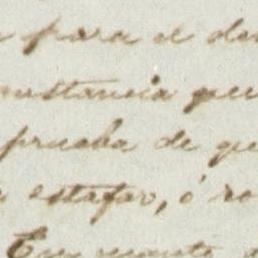 para el de
unstancia que
prueba de qu
estafar, ó ro
En cuanto a